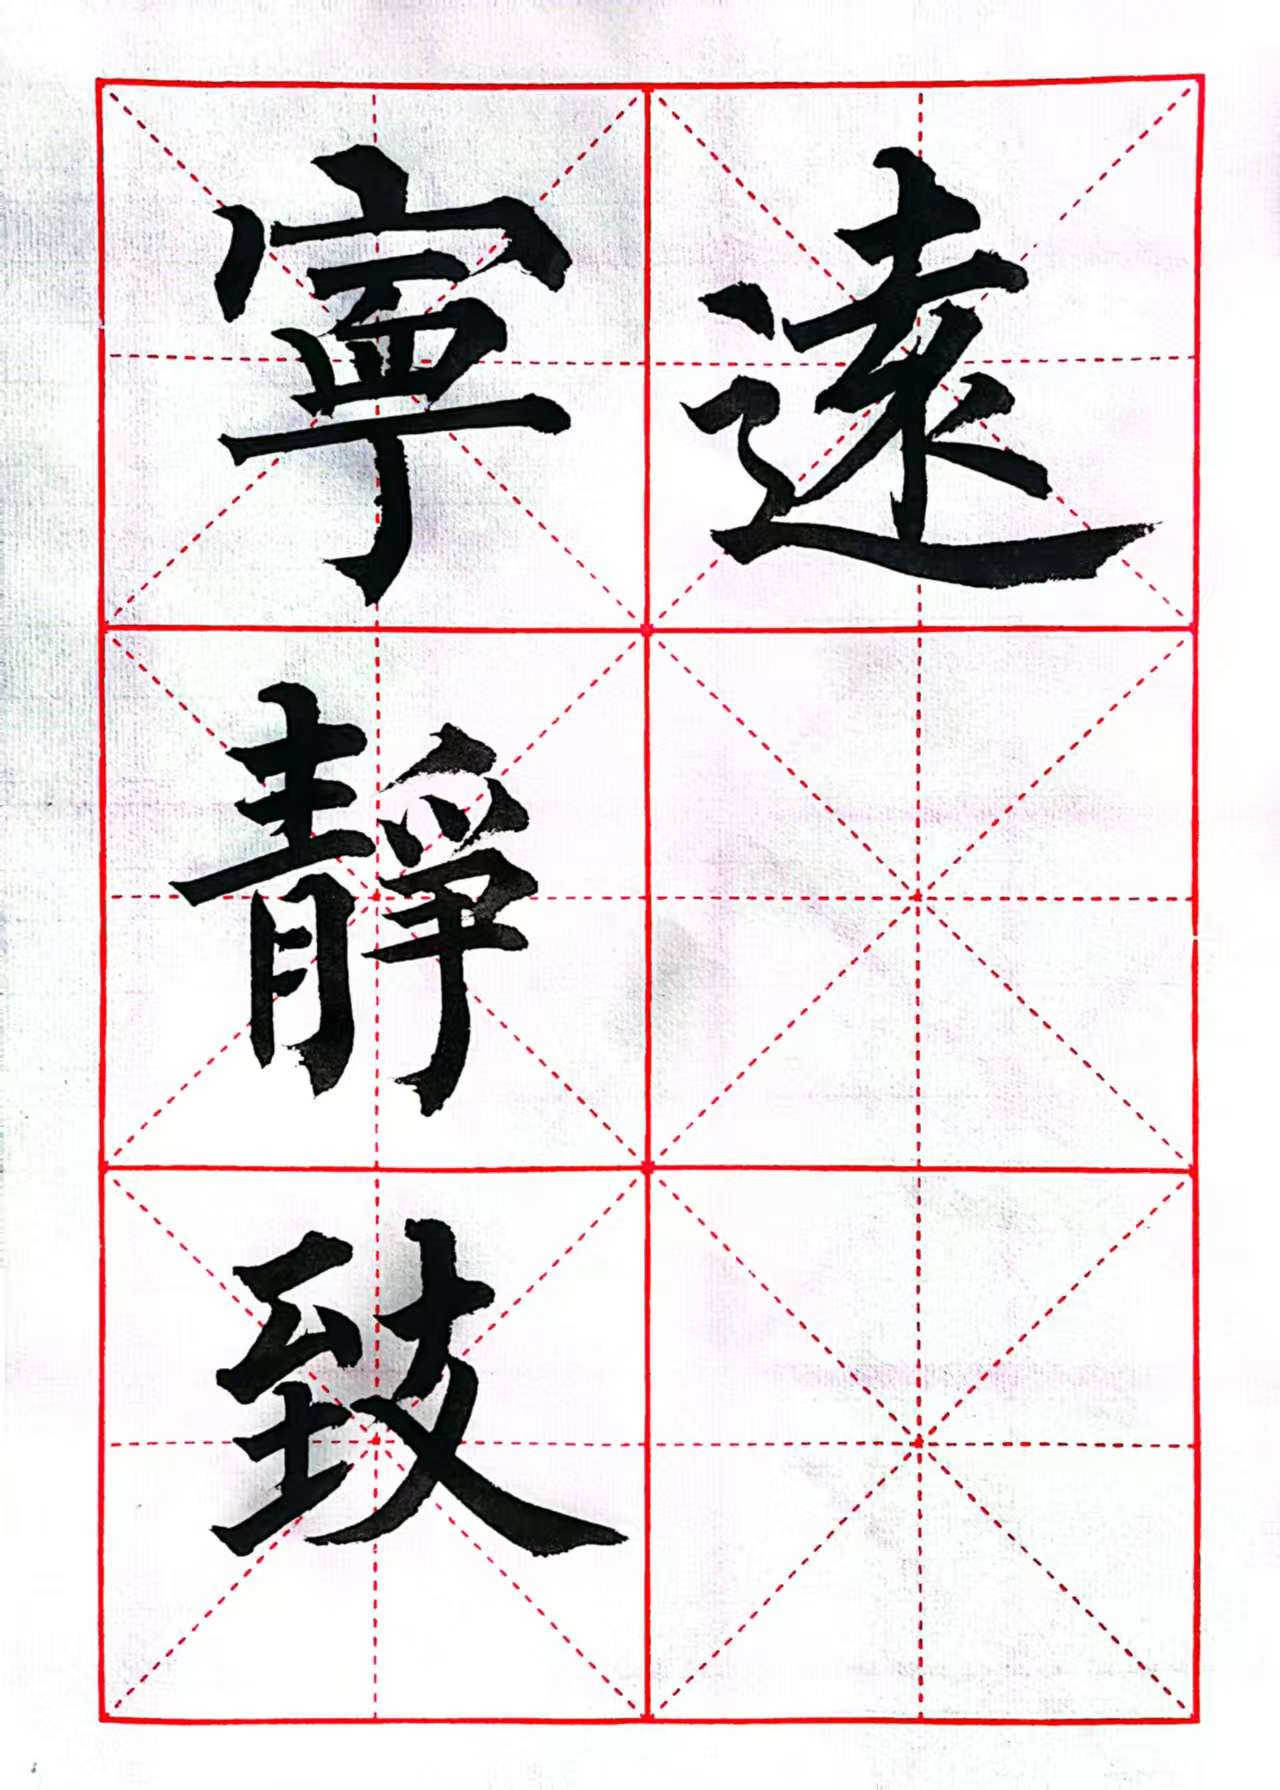 寧靜致
遠